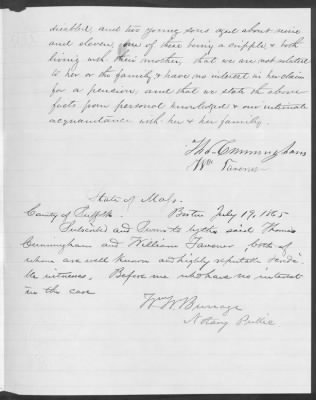 disabled, and two young sons aged about nine
and eleven, one of these being a cripple & both
living with their mother, that we are not related
to her or the family & have no interest in her claim
for a pension, and that we state the above
facts from personal knowledge & our intimate
acquaintance with her & her family.
Thos. Cunningham
Wm Taverner
State of Mass.
County of Suffolk. Boston July 19, 1865
Subscribed and Sworn to by the said Thomas
Cunningham and William Taverner, both of
whom are well known and highly reputable &
witnesses. Before me who have no interest
in the case
Wm W Burrage
Notary Public